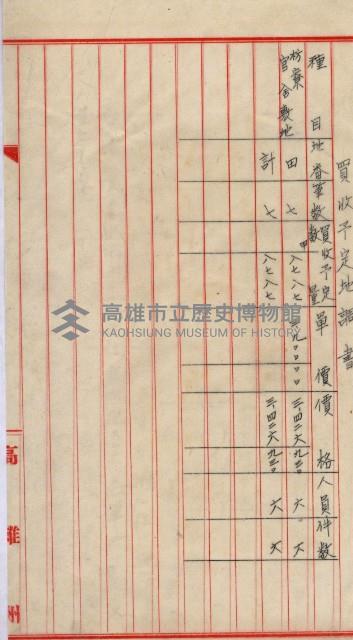 買收予定地調書
種目 地番 筆數 買收予定數量 單價 價格 人員 件數
枋寮官舍敷地 田 七 八七八七 三四二六九二〇 六 六
計 七 八七八七 三四二六九二〇 六 六
高雄州
高雄市立歷史博物館
KAOHSIUNG MUSEUM OF HISTORY